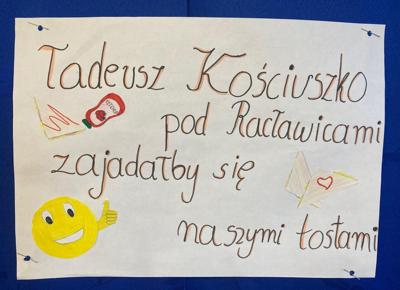 Tadeusz Kościuszko
pod Racławicami
zajadałby się
naszymi tostami